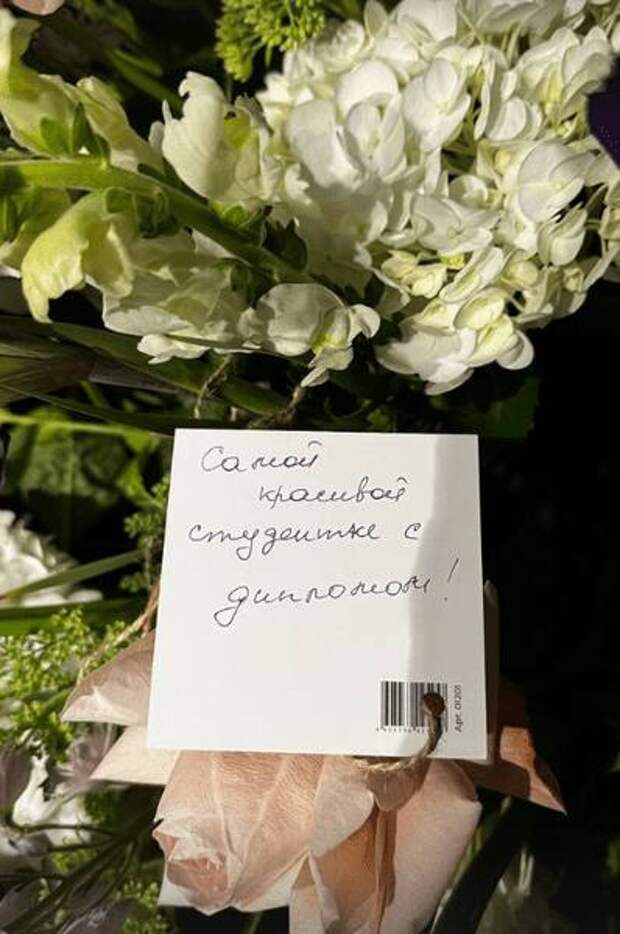 Самой
красивой
студентке с
дипломом!
Арт. 01201